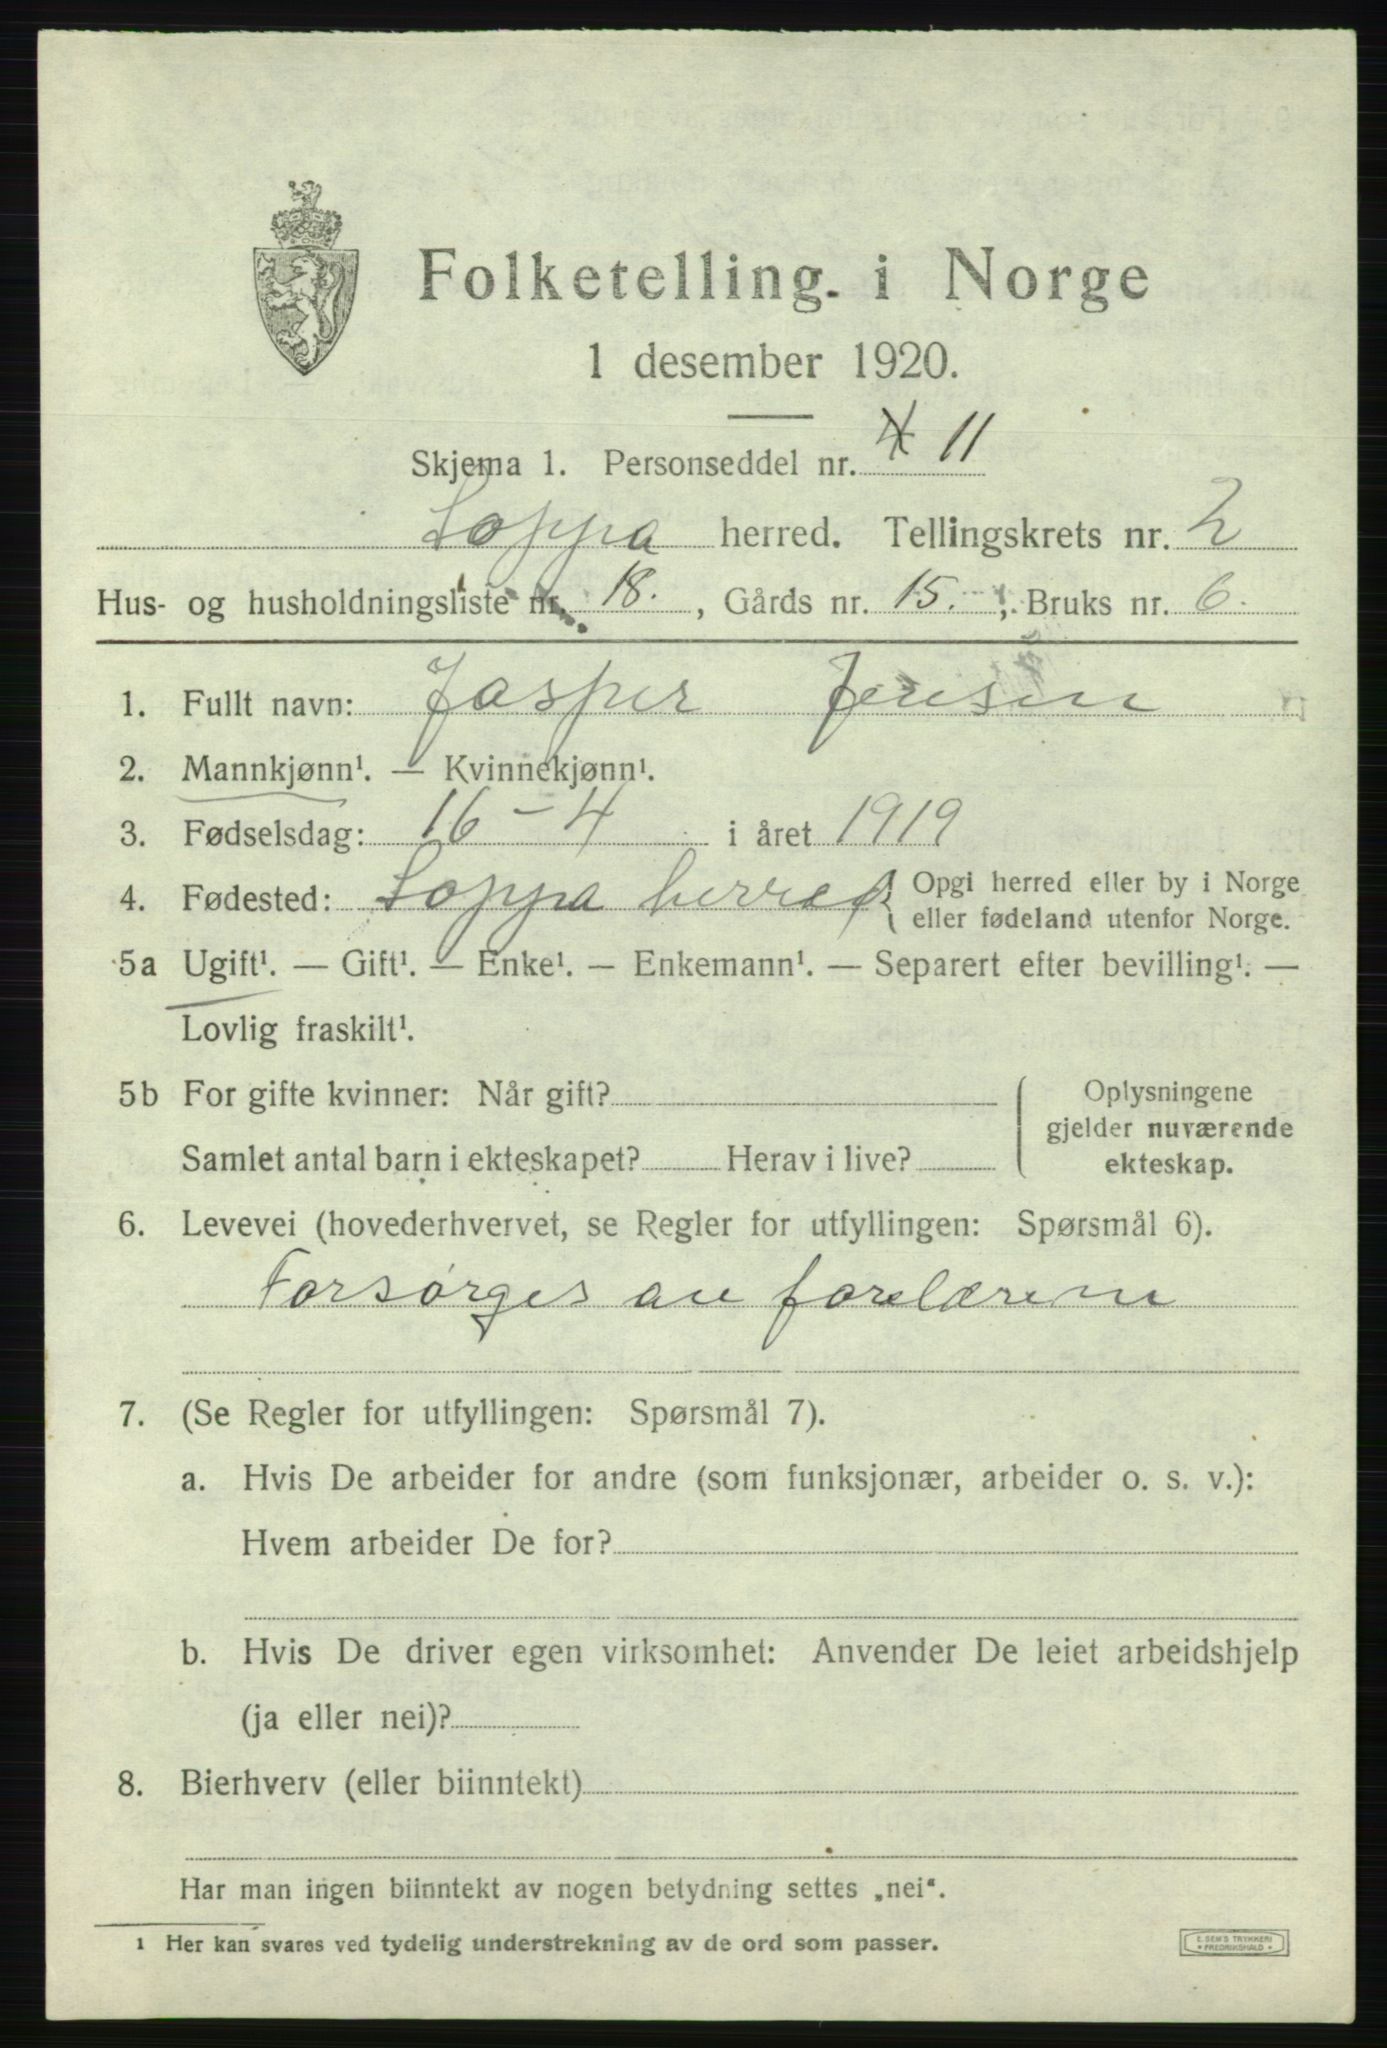 Folketelling i Norge
1 desember 1920.
Skjema 1. Personseddel nr. 4 11
Loppa herred. Tellingskrets nr. 2
Hus- og husholdningsliste nr. 18. , Gårds nr. 15. , Bruks nr. 6.
1. Fullt navn: Jasper Jensen
2. Mannkjønn¹. — Kvinnekjønn¹.
3. Fødselsdag: 16 - 4 i året 1919
4. Fødested: Loppa herred { Opgi herred eller by i Norge
eller fødeland utenfor Norge.
5a Ugift¹. — Gift¹. — Enke¹. — Enkemann¹. — Separert efter bevilling¹. —
Lovlig fraskilt¹.
5b For gifte kvinner: Når gift?
Samlet antal barn i ekteskapet? Herav i live?
Oplysningene
gjelder nuværende
ekteskap.
6. Levevei (hovederhvervet, se Regler for utfyllingen: Spørsmål 6).
Forsørges av forelærene
7. (Se Regler for utfyllingen: Spørsmål 7).
a. Hvis De arbeider for andre (som funksjonær, arbeider o. s. v.):
Hvem arbeider De for?
b. Hvis De driver egen virksomhet: Anvender De leiet arbeidshjelp
(ja eller nei)?
8. Bierhverv (eller biinntekt)
Har man ingen biinntekt av nogen betydning settes „nei“.
1 Her kan svares ved tydelig understrekning av de ord som passer.
E. SEM'S TRYKKERI
FREDRIKSHALD